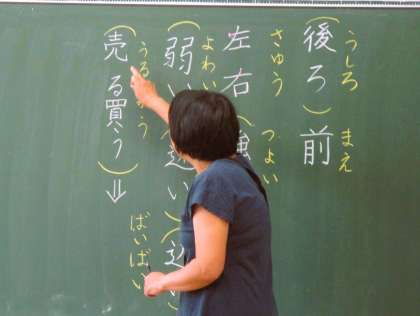 うしろ まえ
（後ろ）前
さゆう つよい
左右（強
よわい
（弱い
い）（
う
（売る買う）⇓
ばいばい